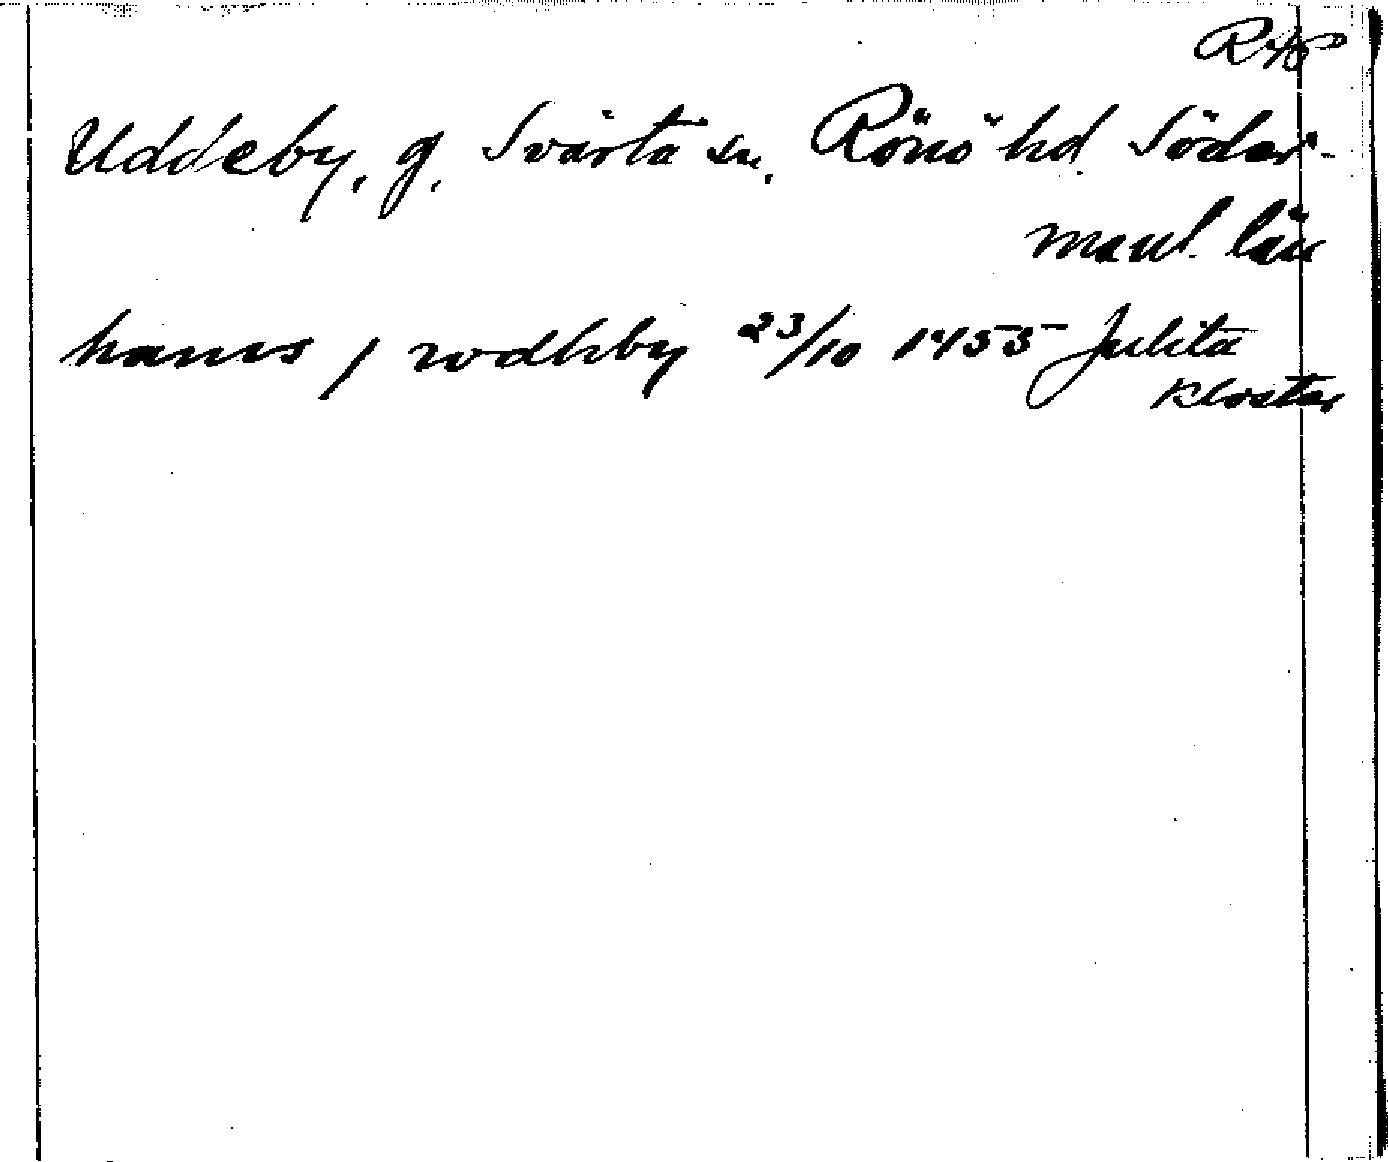 RAP
Uddeby, g, Svärta sn, Rönö hd Söder-
manl. län
hanis j wdhby 23/10 1455 Julita
kloster